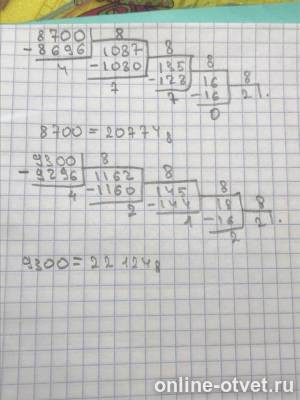 8700 | 8
- 8696 | 1087 | 8
4 - 1080 | 135 | 8
7 - 128 | 16 | 8
7 - 16 | 2 .
0
8700 = 20774₈
9300 | 8
- 9296 | 1162 | 8
4 - 1160 | 145 | 8
2 - 144 | 18 | 8
1 - 16 | 2 .
2
9300 = 22124₈
online-otvet.ru